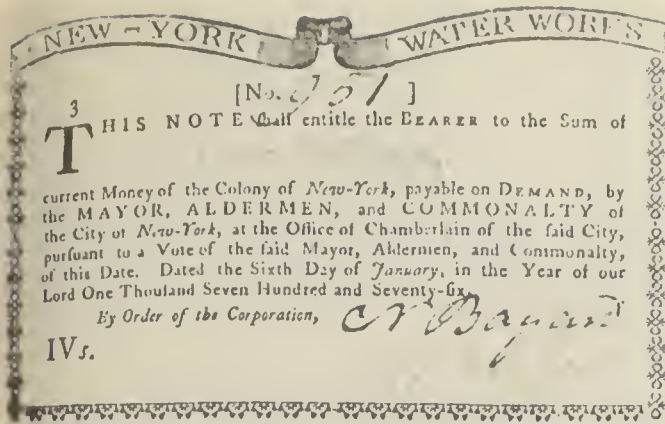 NEW-YORK WATER WORKS
[No. 9561 ]
3
THIS NOTE shall entitle the BEARER to the Sum of
current Money of the Colony of New-York, payable on DEMAND, by
the MAYOR, ALDERMEN, and COMMONALTY of
the City of New-York, at the Office of Chamberlain of the said City,
pursuant to a Vote of the said Mayor, Aldermen, and Commonalty,
of this Date. Dated the Sixth Day of January, in the Year of our
Lord One Thousand Seven Hundred and Seventy-six.
By Order of the Corporation,
IVs.